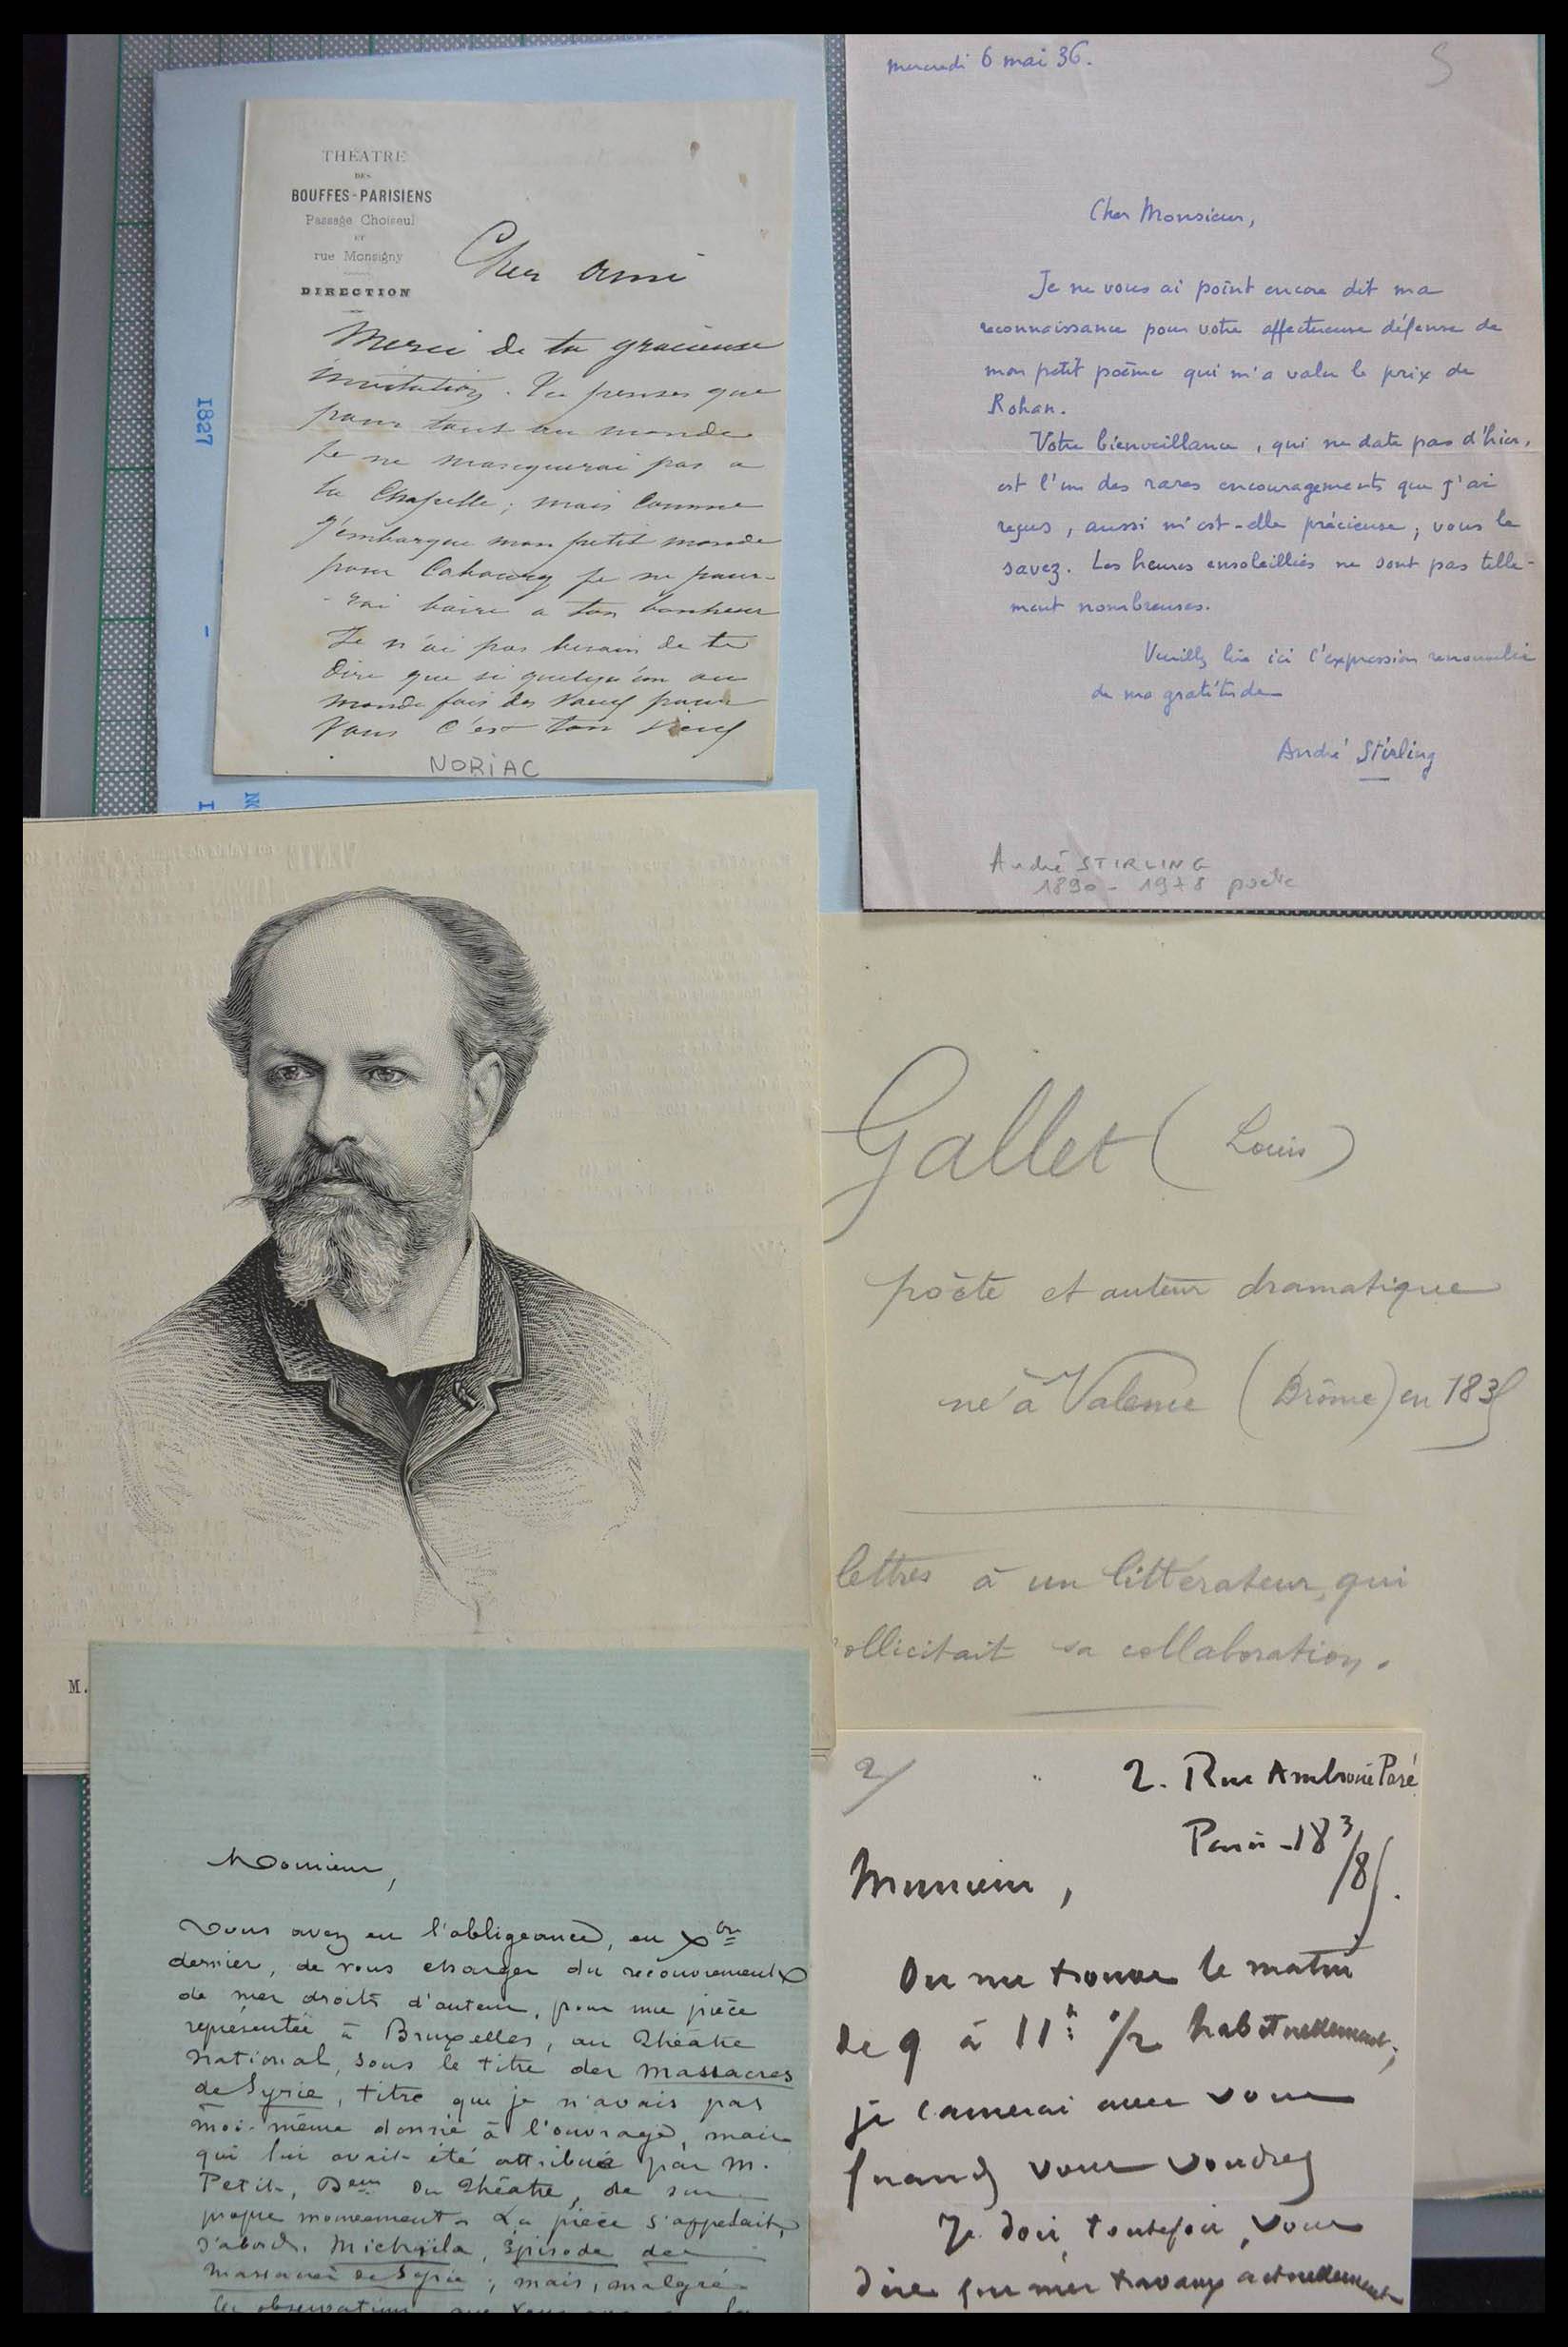 THÉATRE
DES
BOUFFES-PARISIENS
Passage Choiseul
ET
rue Monsigny
DIRECTION
Cher ami
Merci de ta gracieuse
invitation. Tu penses que
pour tout au monde
je ne manquerai pas a
la Chapelle; mais comme
j'embarque mon petit monde
pour Cabourg je ne pour-
-rai boire a ton bonheur
Je n'ai pas besoin de te
dire que si quelqu'un au
monde fais des vœux pour
vous c'est ton vieux
NORIAC
1827
-
mercredi 6 mai 36.
Cher Monsieur,
Je ne vous ai point encore dit ma
reconnaissance pour votre affectueuse défense de
mon petit poème qui m'a valu le prix de
Rohan.
Votre bienveillance, qui ne date pas d'hier,
est l'un des rares encouragements que j'ai
reçus, aussi m'est-elle précieuse; vous le
savez. Les heures ensoleillées ne sont pas telle-
ment nombreuses.
Veuillez lire ici l'expression renouvelée
de ma gratitude
André Stirling
André STIRLING
1890 - 1978 poète
Gallet (Louis)
poète et auteur dramatique
né à Valence (Drôme) en 1835
lettres à un littérateur, qui
ollicitait sa collaboration.
M.
Monsieur,
Vous avez eu l'obligeance, en Xbre
dernier, de vous charger du recouvrement
de mes droits d'auteur, pour une pièce
représentée à Bruxelles, au Théâtre
National, sous le titre des Massacres
de Syrie, titre que je n'avais pas
moi-même donné à l'ouvrage, mais
qui lui avait été attribué par M.
Petit, Deur du Théâtre, de son
propre mouvement. La pièce s'appelait,
d'abord, Michaïla, Episode des
massacres de Syrie; mais, malgré
les observations que vous
2/
2. Rue Ambroise Paré
Paris - 18 3/85.
Monsieur,
On me trouve le matin
de 9 à 11h 1/2 habituellement;
je causerai avec vous
quand vous voudrez
Je dois, toutefois, vous
dire que mes travaux actuellement